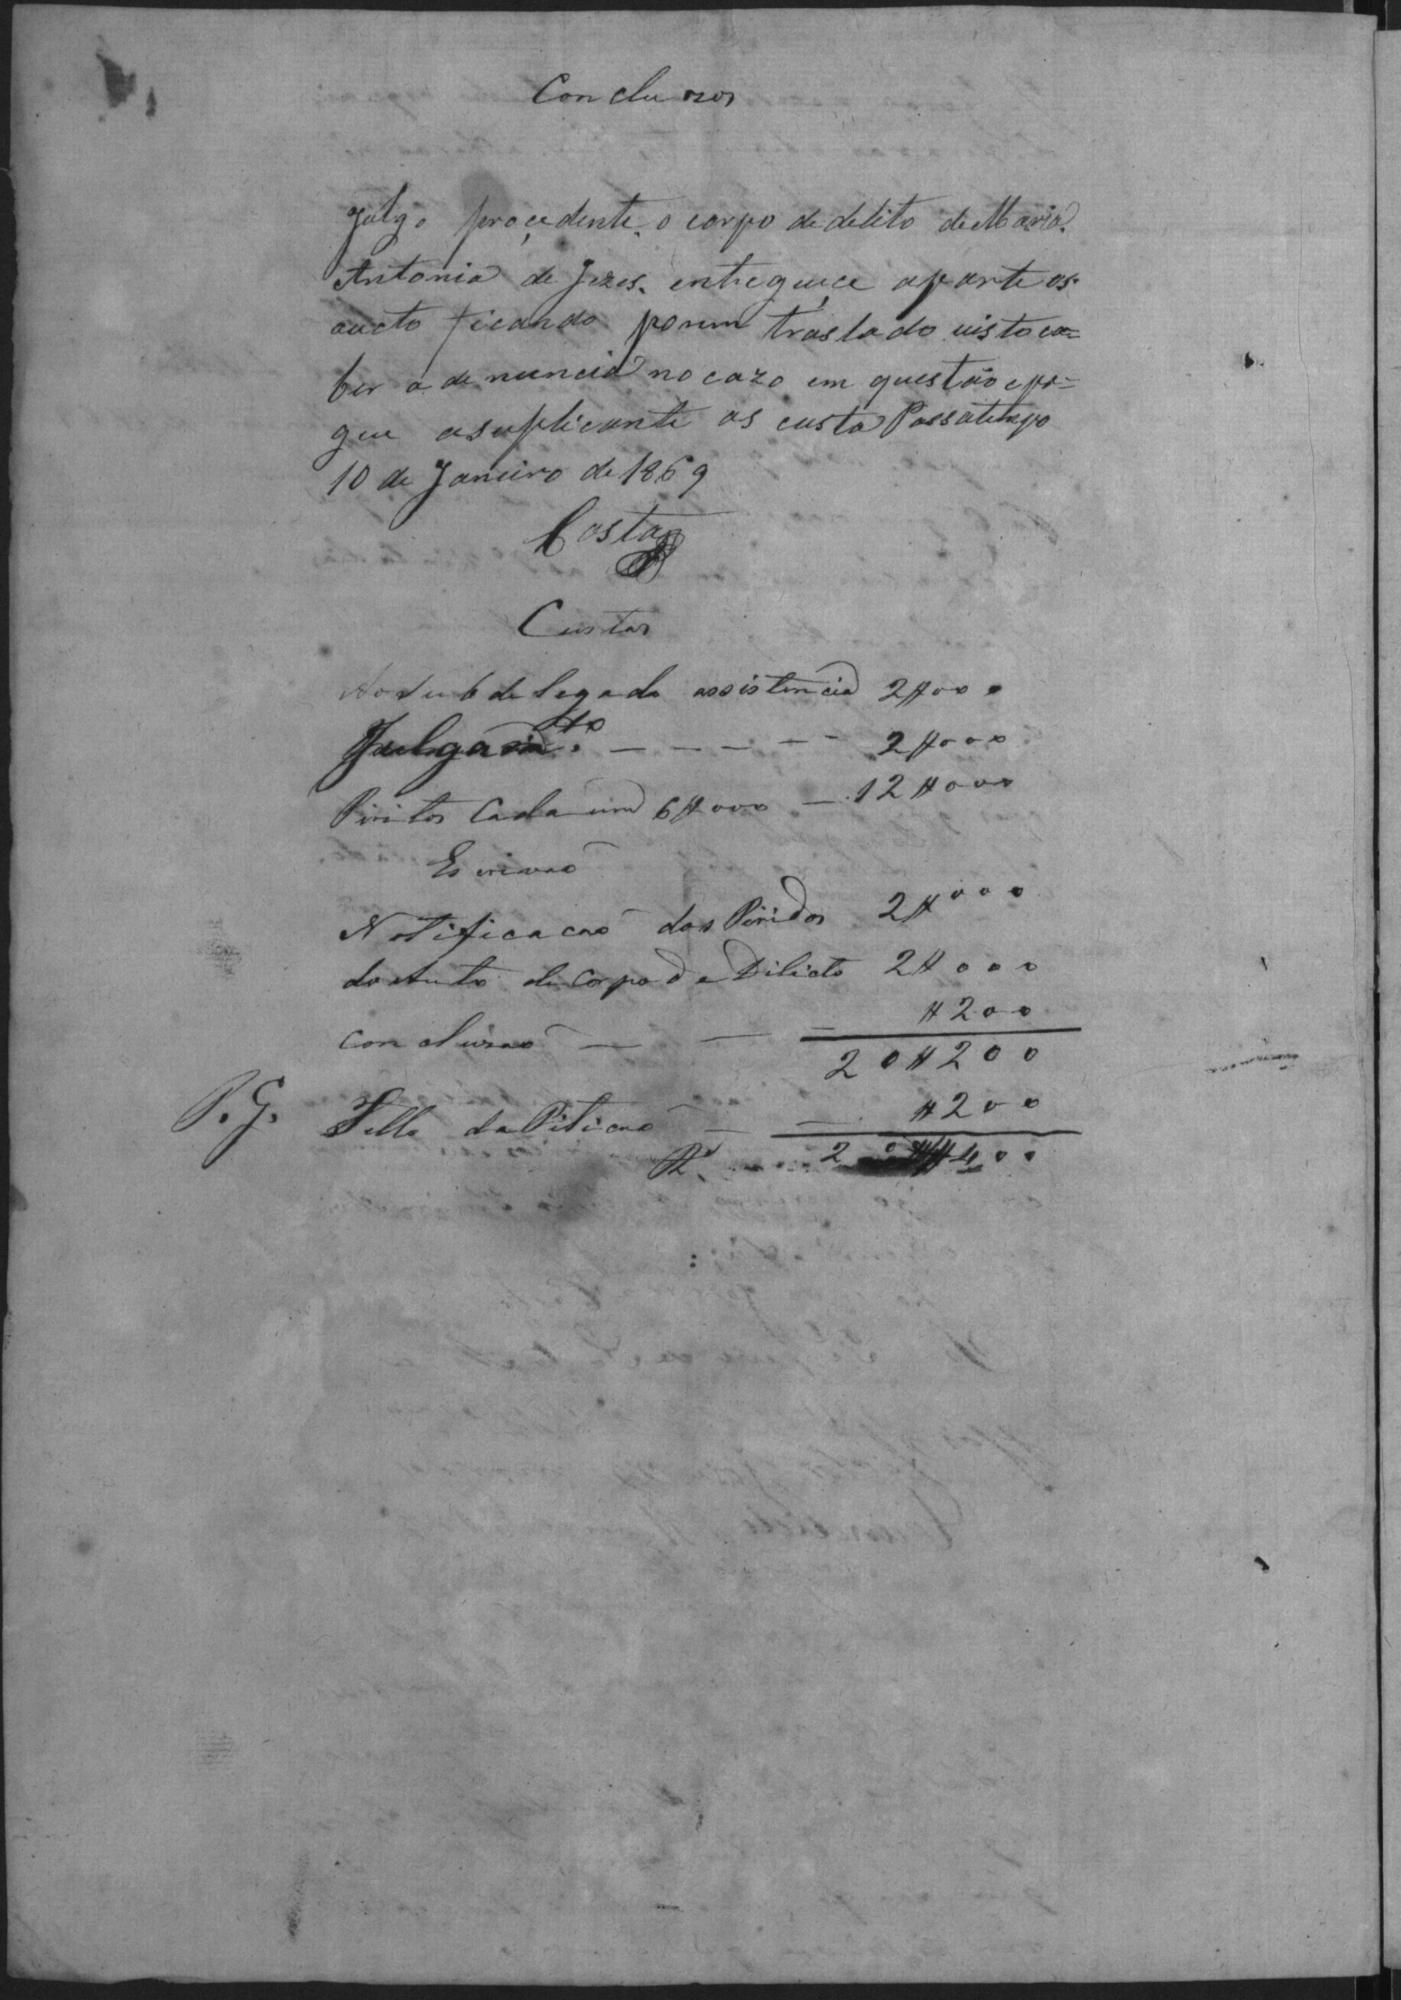 Concluzos
Julgo procedente o corpo de delito de Maria
Antonia de Jezes. entreguece aparte os
aucto ficando porem traslado visto ca=
ber a denuncia no cazo em questão e pa=
gue a suplicante as custa Passatempo
10 de Janeiro de 1869
Costa
Custas
Ao Subdelegado assistencia 2$000
Julgam.to — — — — 2$000
Piritos Cada um 6$000 — 12$000
Escrivaõ
Notificacaõ dos Piridos 2$000
do Auto de Corpo de Dilicto 2$000
Concluzaõ — — — $200
20$200
P. G. Sello da Piticaõ — — $200
R.s 20$400